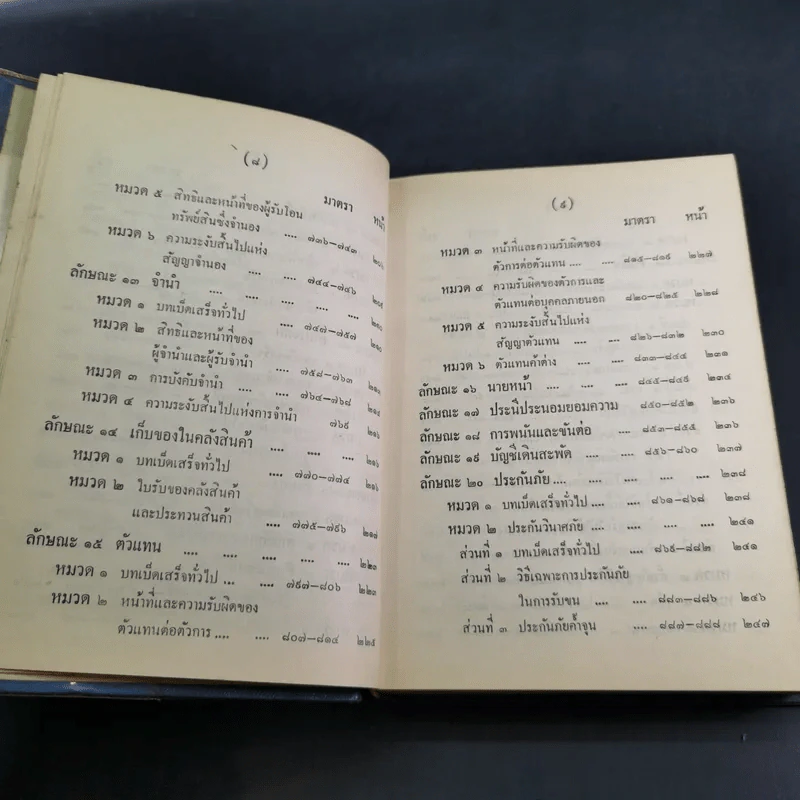 (๘)
มาตรา หน้า
หมวด ๕ สิทธิและหน้าที่ของผู้รับโอน
ทรัพย์สินซึ่งจำนอง .... ๗๓๖—๗๔๓
หมวด ๖ ความระงับสิ้นไปแห่ง
สัญญาจำนอง .... .... ๗๔๔—๗๔๖
ลักษณะ ๑๓ จำนำ .... .... .... ....
หมวด ๑ บทเบ็ดเสร็จทั่วไป .... ๗๔๗—๗๕๗ ๒๑๐
หมวด ๒ สิทธิและหน้าที่ของ
ผู้จำนำและผู้รับจำนำ .... ๗๕๘—๗๖๓
หมวด ๓ การบังคับจำนำ .... ๗๖๔—๗๖๘
หมวด ๔ ความระงับสิ้นไปแห่งการจำนำ ๗๖๙ ๒๑๖
ลักษณะ ๑๔ เก็บของในคลังสินค้า .... .... .... ๒๑๖
หมวด ๑ บทเบ็ดเสร็จทั่วไป .... ๗๗๐—๗๗๔ ๒๑๖
หมวด ๒ ใบรับของคลังสินค้า
และประทวนสินค้า .... ๗๗๕—๗๙๖ ๒๑๗
ลักษณะ ๑๕ ตัวแทน .... .... .... .... ๒๒๓
หมวด ๑ บทเบ็ดเสร็จทั่วไป ... .... ๗๙๗—๘๐๖ ๒๒๓
หมวด ๒ หน้าที่และความรับผิดของ
ตัวแทนต่อตัวการ .... .... ๘๐๗—๘๑๔ ๒๒๕
(๙)
มาตรา หน้า
หมวด ๓ หน้าที่และความรับผิดของ
ตัวการต่อตัวแทน .... .... ๘๑๕—๘๑๙ ๒๒๗
หมวด ๔ ความรับผิดของตัวการและ
ตัวแทนต่อบุคคลภายนอก ๘๒๐—๘๒๕ ๒๒๘
หมวด ๕ ความระงับสิ้นไปแห่ง
สัญญาตัวแทน .... .... ๘๒๖—๘๓๒ ๒๓๐
หมวด ๖ ตัวแทนค้าต่าง .... ๘๓๓—๘๔๔ ๒๓๑
ลักษณะ ๑๖ นายหน้า .... .... .... ๘๔๕—๘๔๙ ๒๓๔
ลักษณะ ๑๗ ประนีประนอมยอมความ ๘๕๐—๘๕๒ ๒๓๖
ลักษณะ ๑๘ การพนันและขันต่อ .... ๘๕๓—๘๕๕ ๒๓๖
ลักษณะ ๑๙ บัญชีเดินสะพัด .... .... ๘๕๖—๘๖๐ ๒๓๗
ลักษณะ ๒๐ ประกันภัย .... .... .... .... ๒๓๘
หมวด ๑ บทเบ็ดเสร็จทั่วไป .... ๘๖๑—๘๖๘ ๒๓๘
หมวด ๒ ประกันวินาศภัย .... .... .... .... ๒๔๑
ส่วนที่ ๑ บทเบ็ดเสร็จทั่วไป .... ๘๖๙—๘๘๒ ๒๔๑
ส่วนที่ ๒ วิธีเฉพาะการประกันภัย
ในการรับขน .... .... ๘๘๓—๘๘๖ ๒๔๖
ส่วนที่ ๓ ประกันภัยค้ำจุน .... ๘๘๗—๘๘๘ ๒๔๗